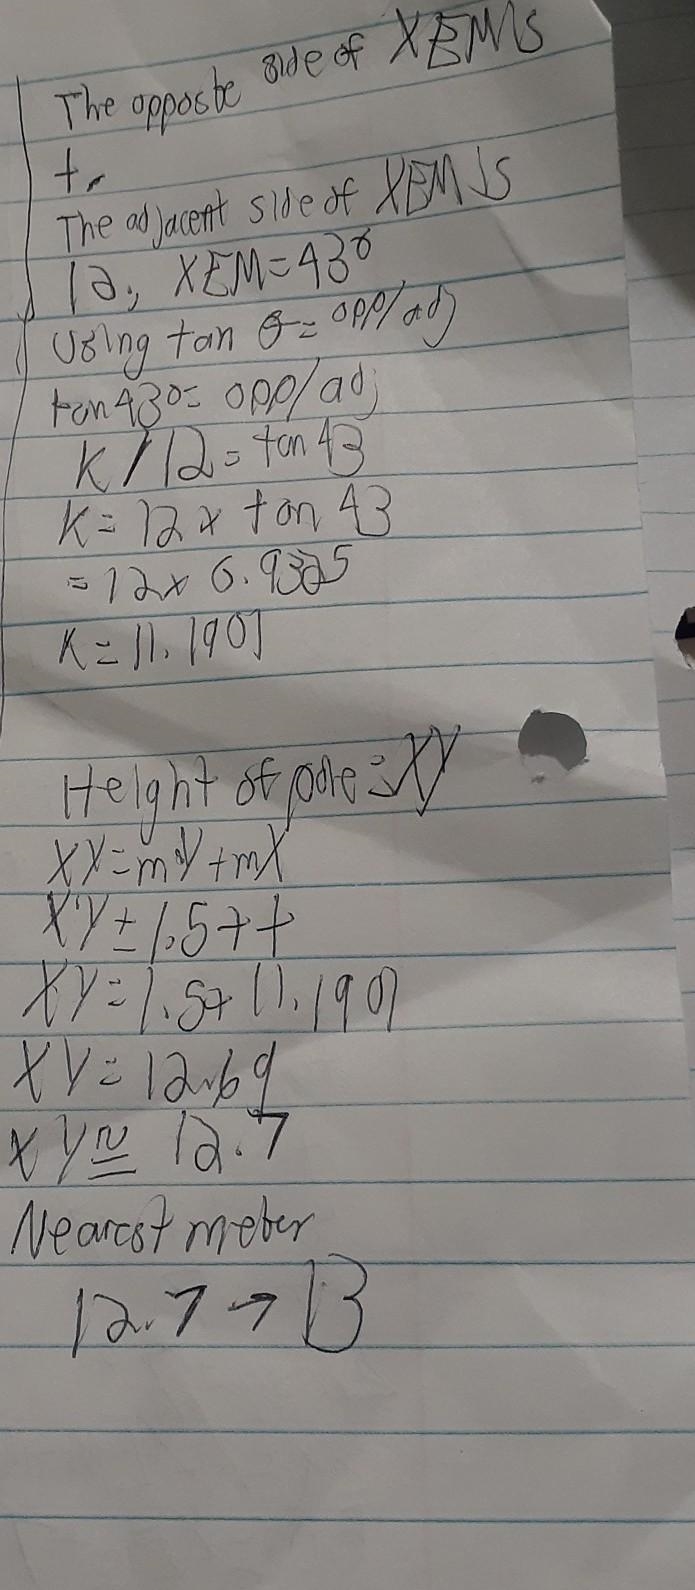 The opposite side of XEM is
t.
The adjacent side of XEM is
12, XEM=43°
Using tan θ= opp/adj
tan43°= opp/adj
K/12=tan 43
K=12x tan 43
=12x 0.9325
K=11.1907
Height of pole=XY
XY=mY+mX
XY=1.5+t
XY=1.5+11.1907
XY=12.69
XY≅12.7
Nearest meter
12.7→13